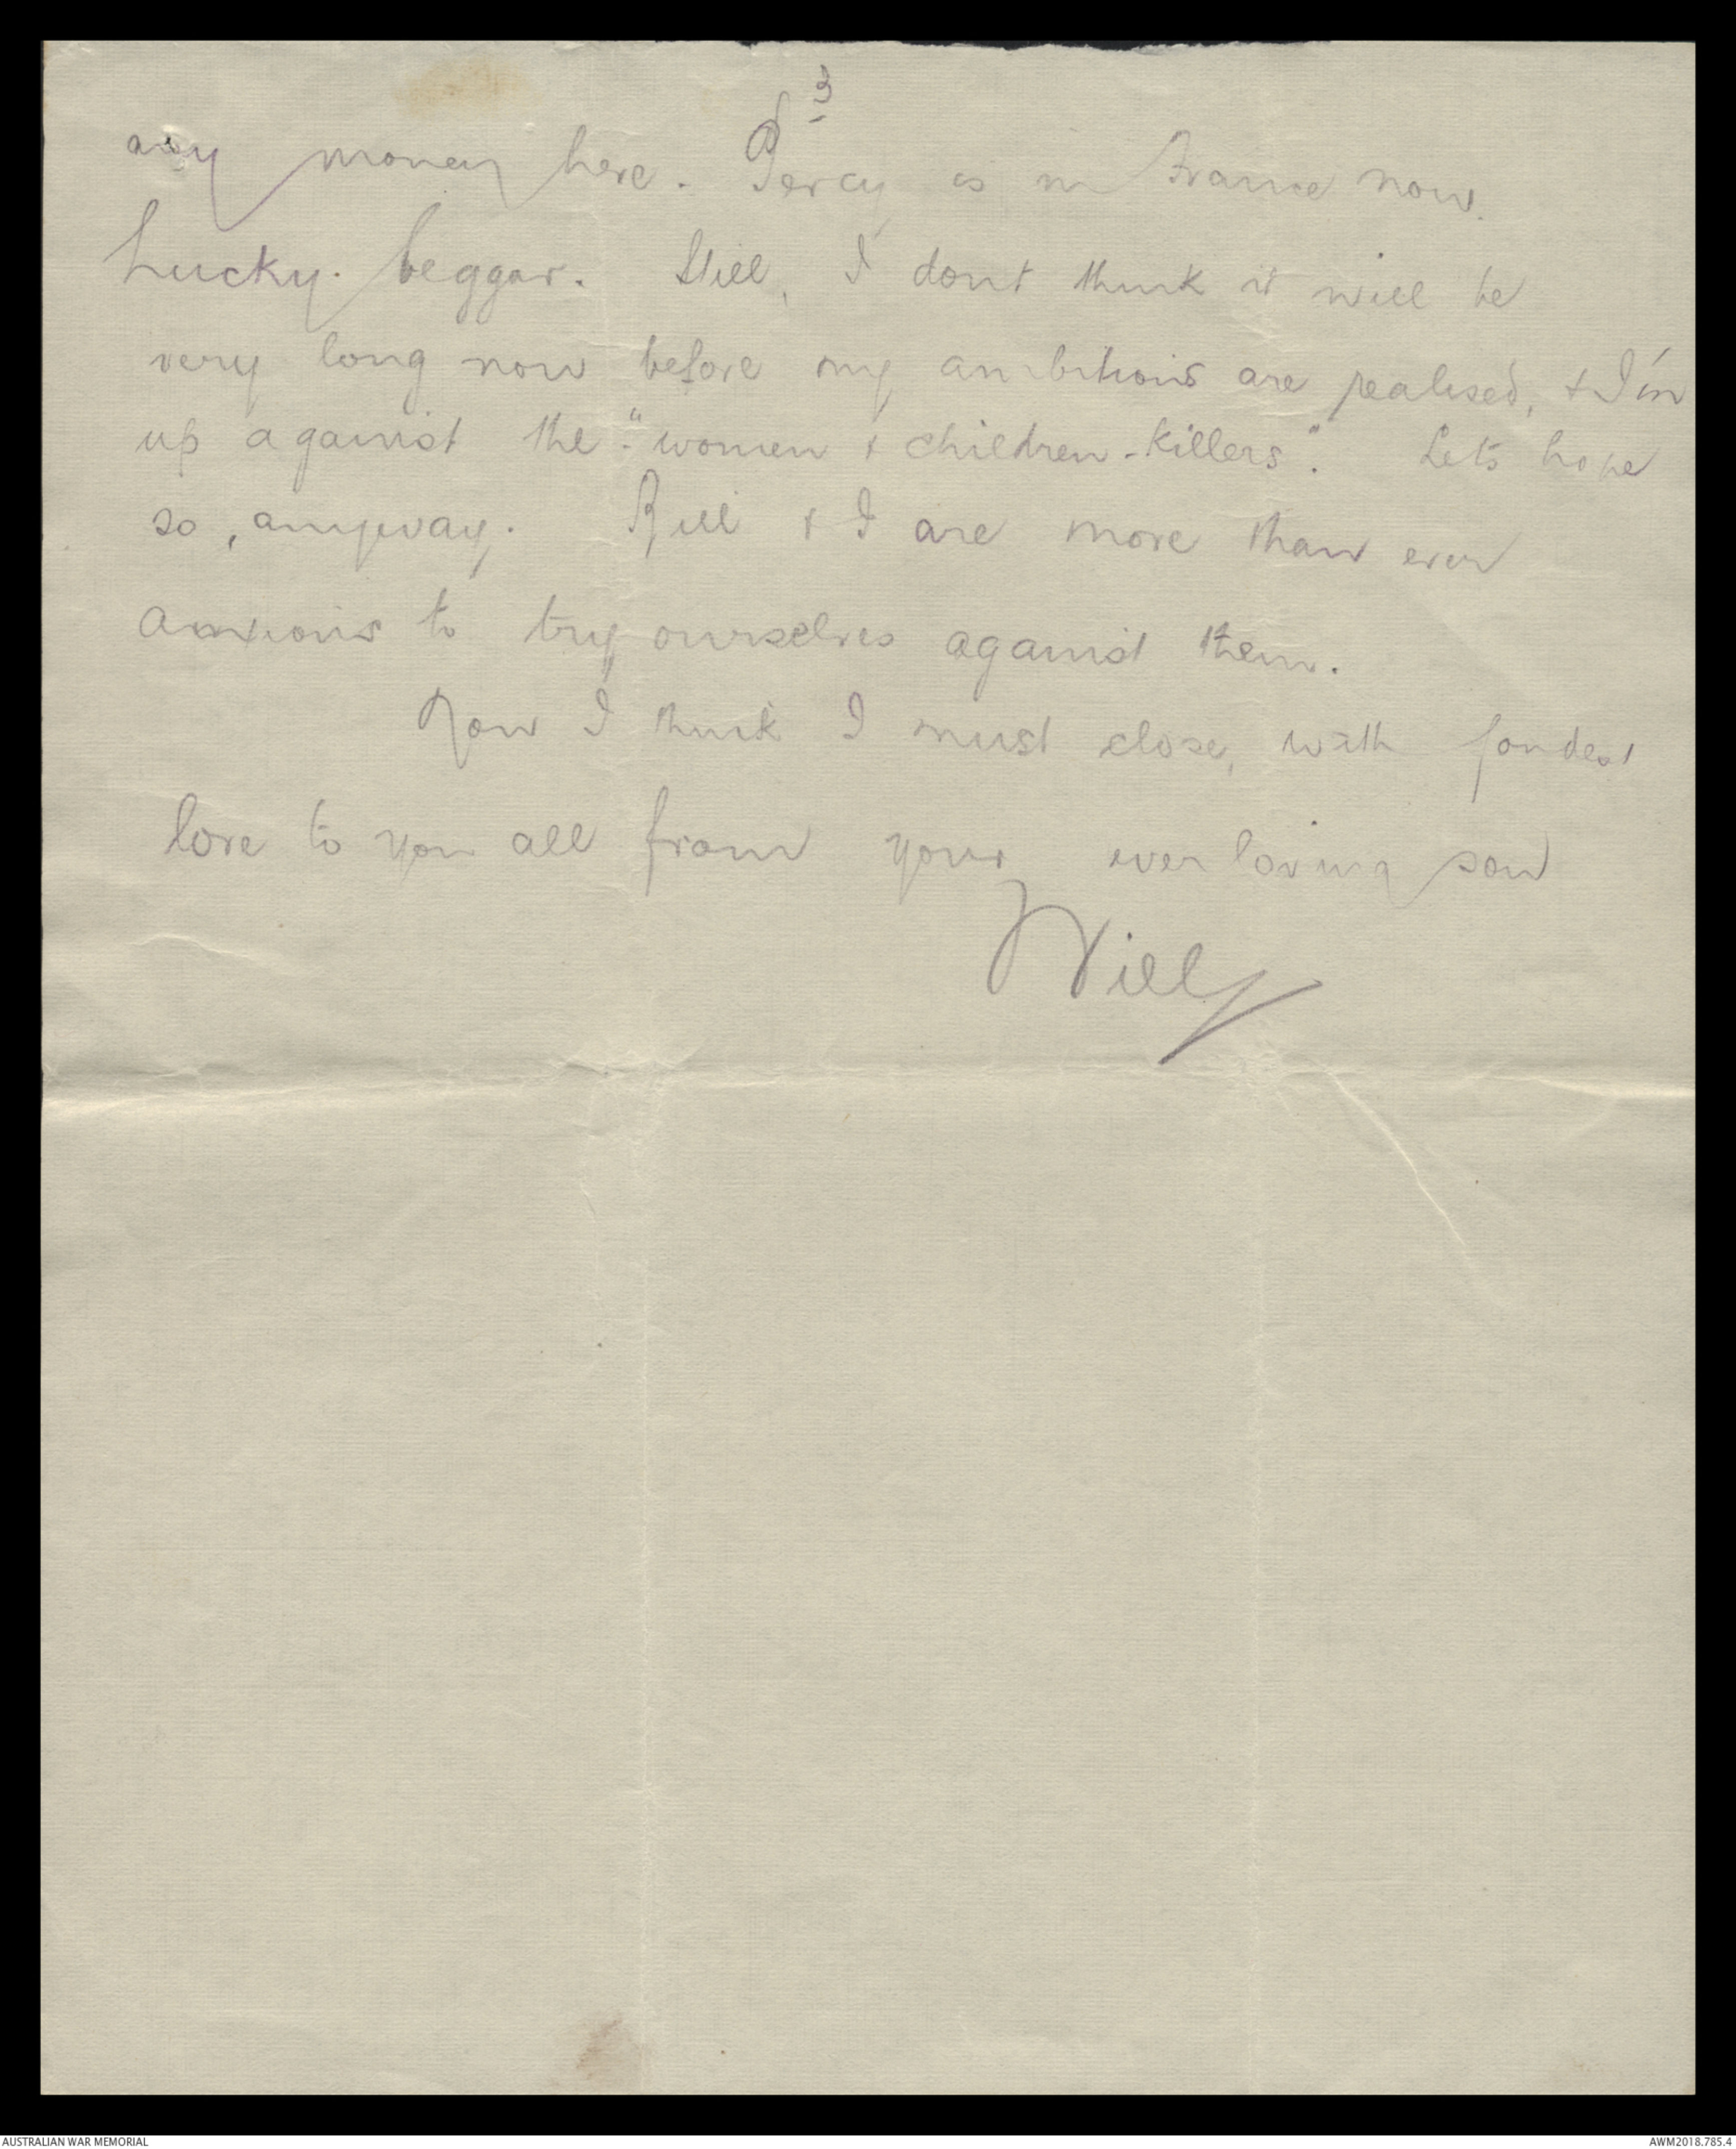 3
any money here. Percy is in France now.
Lucky beggar. Still, I dont think it will be
very long now before my ambitions are realised, & I'm
up against the "women & children-killers". Lets hope
so, anyway. Bill & I are more than ever
anxious to try ourselves against them.
Now I think I must close, with fondest
love to you all from your ever loving son
Will
AUSTRALIAN WAR MEMORIAL
AWM2018.785.4